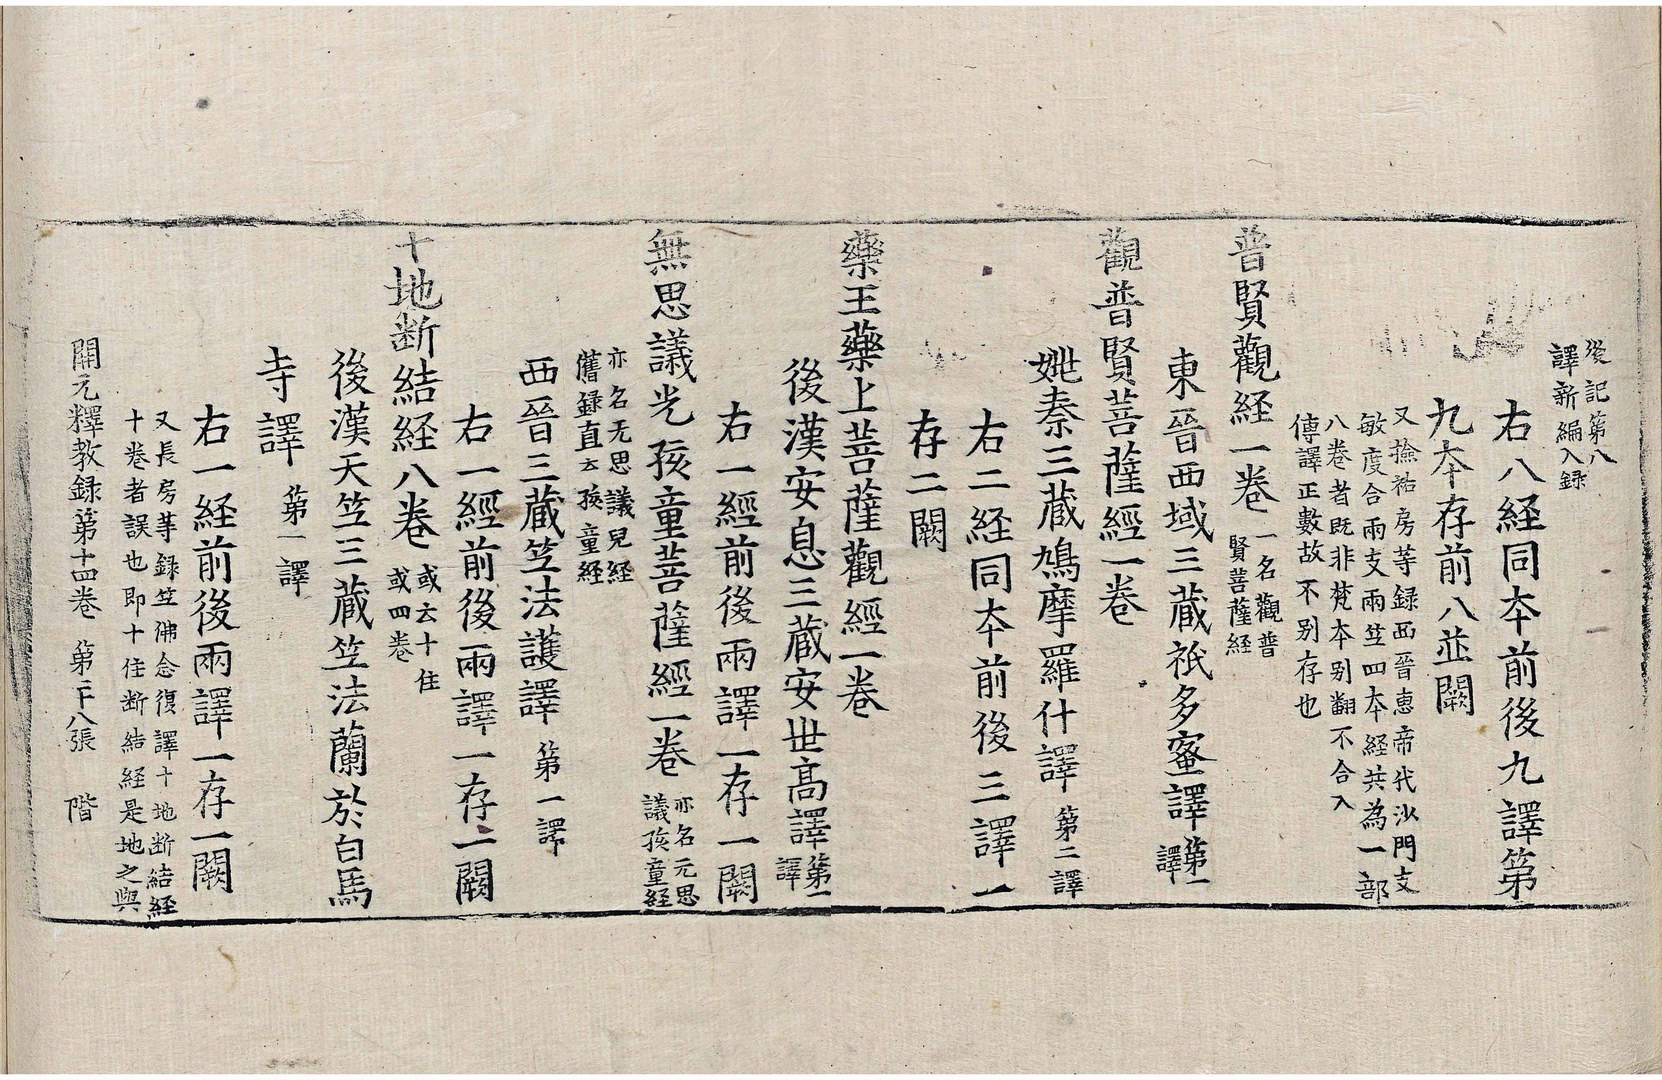 後記第八
譯新編入録
右八経同本前後九譯第
九本存前八並闕
又撿祐房等録西晉惠帝代沙門支
敏度合兩支兩竺四本経共為一部
八卷者既非梵本别翻不合入
傳譯正數故不别存也
普賢觀経一卷 一名觀普
賢菩薩経
東晉西域三藏祇多蜜譯 第一
譯
觀普賢菩薩經一卷
姚秦三藏鳩摩羅什譯 第二譯
右二経同本前後三譯一
存二闕
藥王藥上菩薩觀經一卷
後漢安息三藏安世高譯 第一
譯
右一經前後兩譯一存一闕
無思議光孩童菩薩經一卷 亦名无思
議孩童経
亦名无思議兒経
舊録直云孩童経
西晉三藏竺法護譯 第一譯
右一經前後兩譯一存一闕
十地断結経八卷 或云十住
或四卷
後漢天竺三藏竺法蘭於白馬
寺譯 第一譯
右一経前後兩譯一存一闕
又長房等録竺佛念復譯十地断結経
十卷者誤也即十住断結経是地之與
開元釋教録第十四卷 第二十八張 階